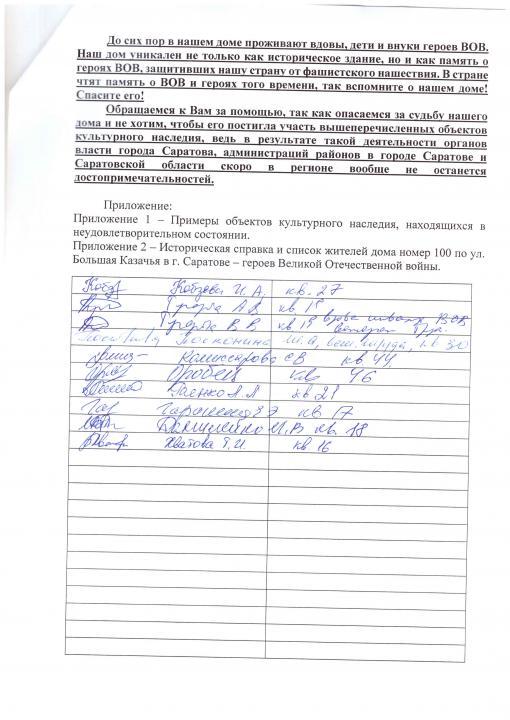 До сих пор в нашем доме проживают вдовы, дети и внуки героев ВОВ.
Наш дом уникален не только как историческое здание, но и как память о
героях ВОВ, защитивших нашу страну от фашистского нашествия. В стране
чтят память о ВОВ и героях того времени, так вспомните о нашем доме!
Спасите его!
Обращаемся к Вам за помощью, так как опасаемся за судьбу нашего
дома и не хотим, чтобы его постигла участь вышеперечисленных объектов
культурного наследия, ведь в результате такой деятельности органов
власти города Саратова, администраций районов в городе Саратове и
Саратовской области скоро в регионе вообще не останется
достопримечательностей.
Приложение:
Приложение 1 – Примеры объектов культурного наследия, находящихся в
неудовлетворительном состоянии.
Приложение 2 – Историческая справка и список жителей дома номер 100 по ул.
Большая Казачья в г. Саратове – героев Великой Отечественной войны.
Кобзева И. А. кв. 27
А.В. кв 19 вдова ВОВ
В.В. кв 19 ветеран
М.А, вет. труда, кв 30
Комиссарова СВ кв 44
кв 46
А.А кв 21
кв 17
И.В кв. 18
Хватова Т.И. кв 16